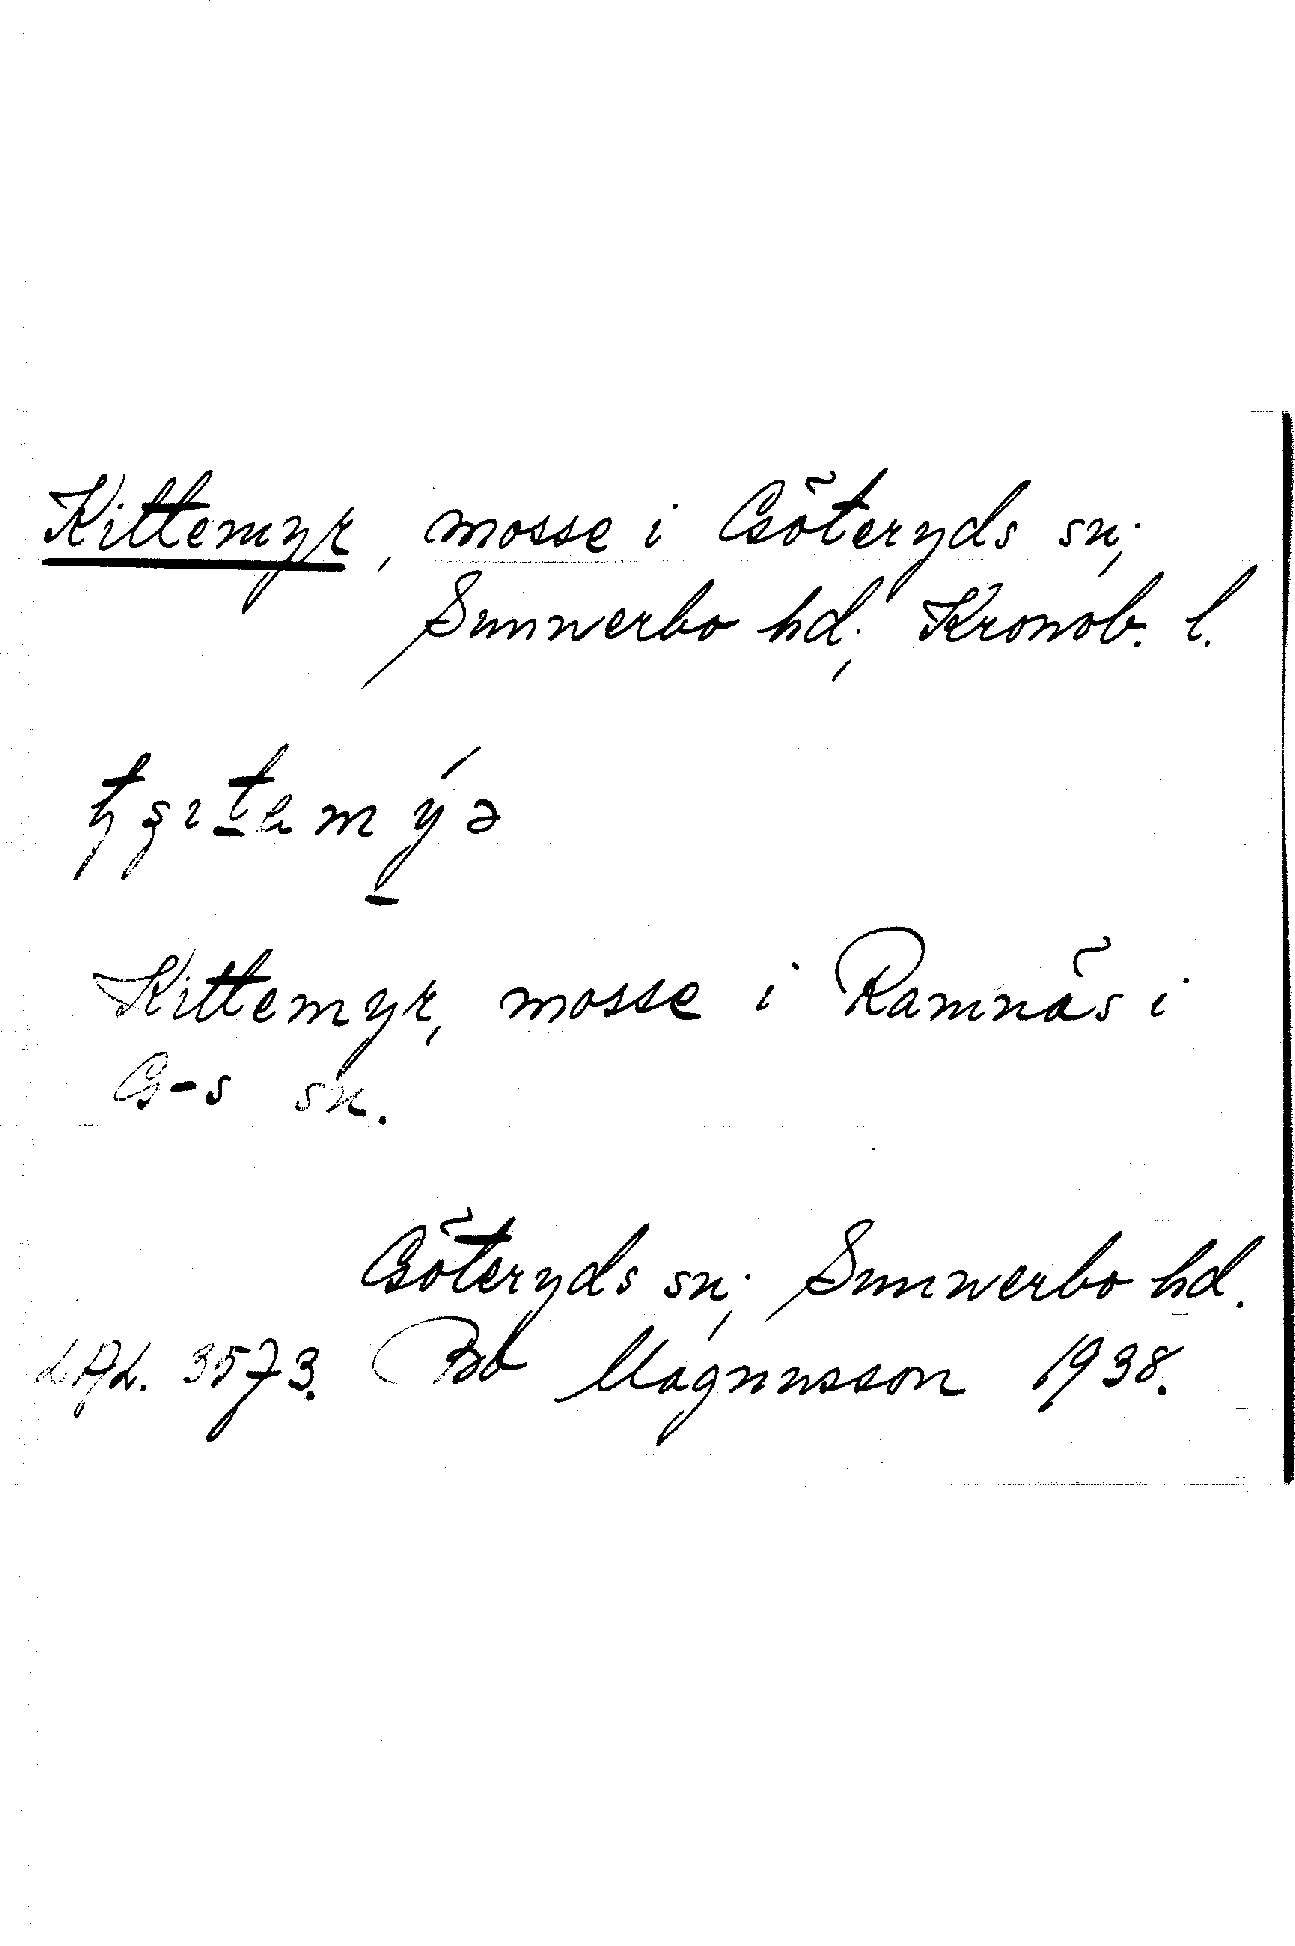 Kittemyr, mosse i Göteryds sn;
Sunnerbo hd; Kronob. l.
Kittemyr, mosse i Ramnäs i
G-s sn.
Göteryds sn; Sunnerbo hd.
LAL. 3573. Bo Magnusson 1938.